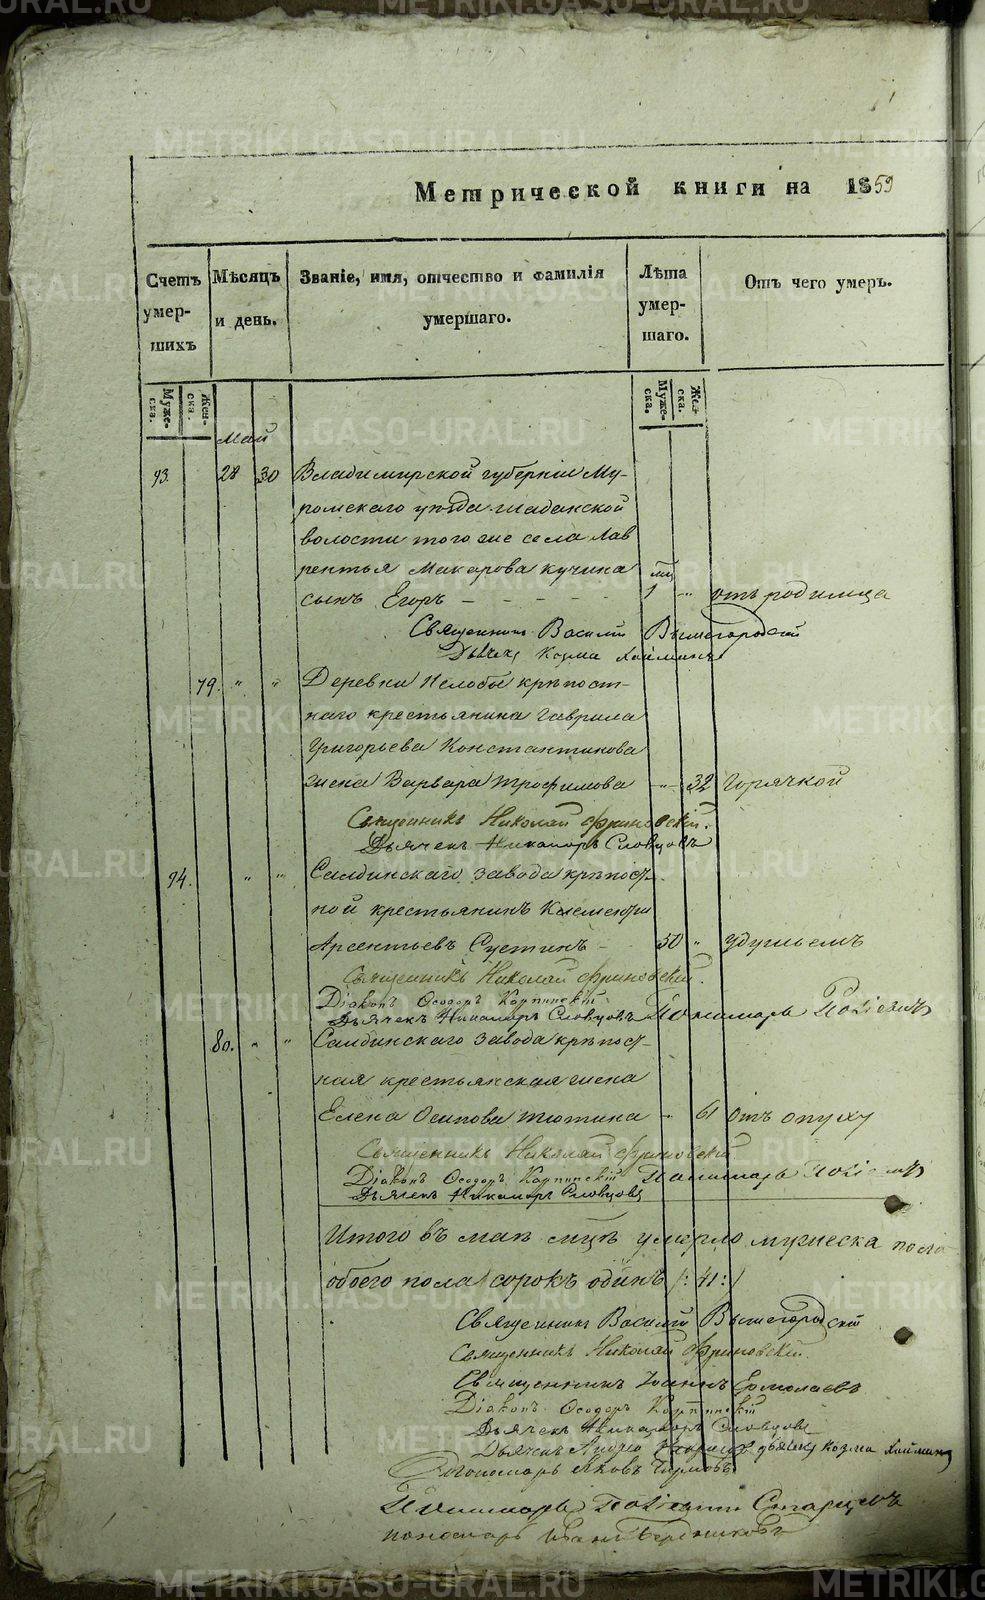 METRIKI.GASO-URAL.RU
Метрической книги на 1859
Счетъ умер- шихъ
Мѣсяцъ и день.
Званіе, имя, отчество и фамилія умершаго.
Лѣта умер- шаго.
Отъ чего умеръ.
Муже- ска.
Жен- ска.
Муже- ска.
Жен- ска.
Май
93. 28 30 Владимирской губерніи Му-
ромскаго уѣзда
волости того же села Лав
рентья Макарова Кучина
сынъ Егоръ - - - 1 мц " отъ родимца
Священникъ Василій Вышегородскій
Дьячекъ Козма
79. " " Деревни Нелобы крѣпост-
наго крестьянина Гаврила
Григорьева Константинова
жена Варвара Трофимова " 32 Горячкой
Священникъ Николай Фриновскій.
Дьячекъ Никаноръ Словцовъ
94. " " Салдинскаго завода крѣпост-
ной крестьянинъ Клементій
Арсентьевъ Сустинъ - 50 " удушьемъ
Священникъ Николай Фриновскій.
Діаконъ Ѳеодоръ Карпинскій
Дьячекъ Никаноръ Словцовъ Пономарь
80. " " Салдинскаго завода крѣпост-
ная крестьянская жена
Елена Осипова Тютина - 61 отъ опуху
Священникъ Николай Фриновскій
Діаконъ Ѳеодоръ Карпинскій Пономарь
Дьячекъ Никаноръ Словцовъ
Итого въ маѣ мцѣ умерло мужеска пола
обоего пола сорокъ одинъ /: 41 :/
Священникъ Василій Вышегородскій
Священникъ Николай Фриновскій.
Священникъ Іоаннъ Ермолаевъ
Діаконъ Ѳеодоръ Карпинскій
Дьячекъ Никаноръ Словцовъ
Дьячекъ Андрей дьячекъ Козма
Пономарь Яковъ
Пономарь Старцевъ
пономарь Иванъ